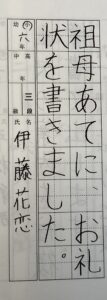 祖母あてに、お礼
状を書きました。
幼 小 中 高 六年 三級段 氏名 伊藤花恋